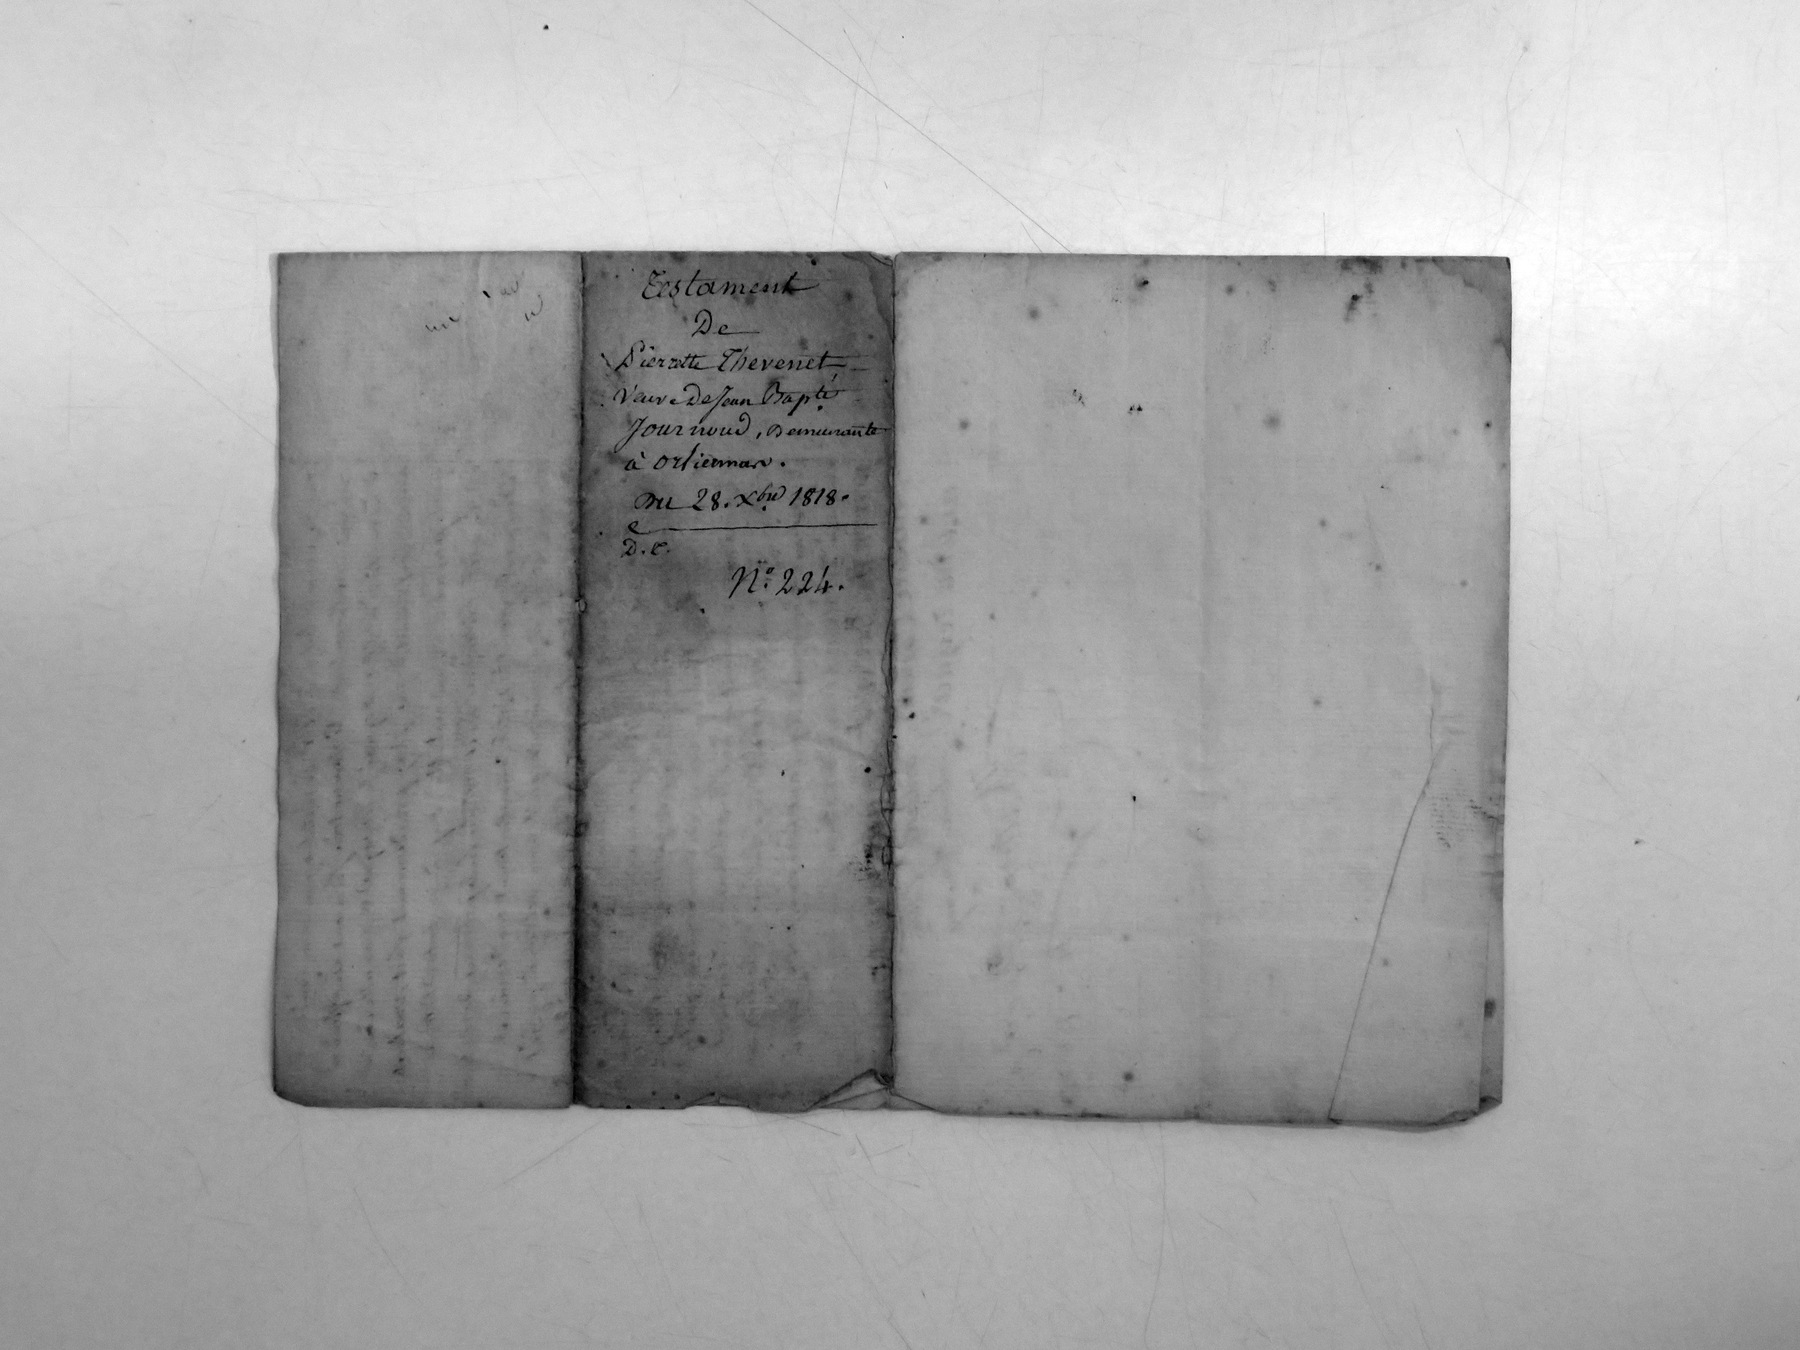 Testament
De
Pierrette Thevenet
Veuve De Jean Bapte
Journoud, Demeurante
à
Du 28. Xbre 1818.
D.C.
N.° 224.